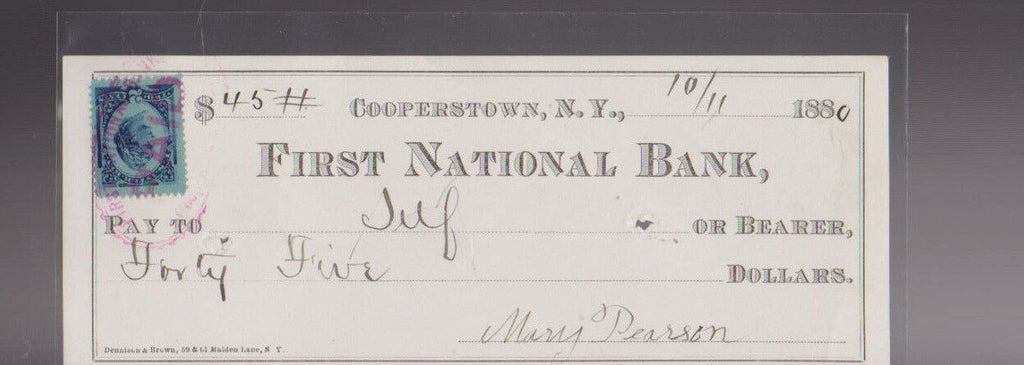 $ 45 # COOPERSTOWN, N. Y., 10/11 1880
FIRST NATIONAL BANK,
PAY TO Self OR BEARER,
Forty Five DOLLARS.
Mary Pearson
Dennison & Brown, 59 & 61 Maiden Lane, N Y.